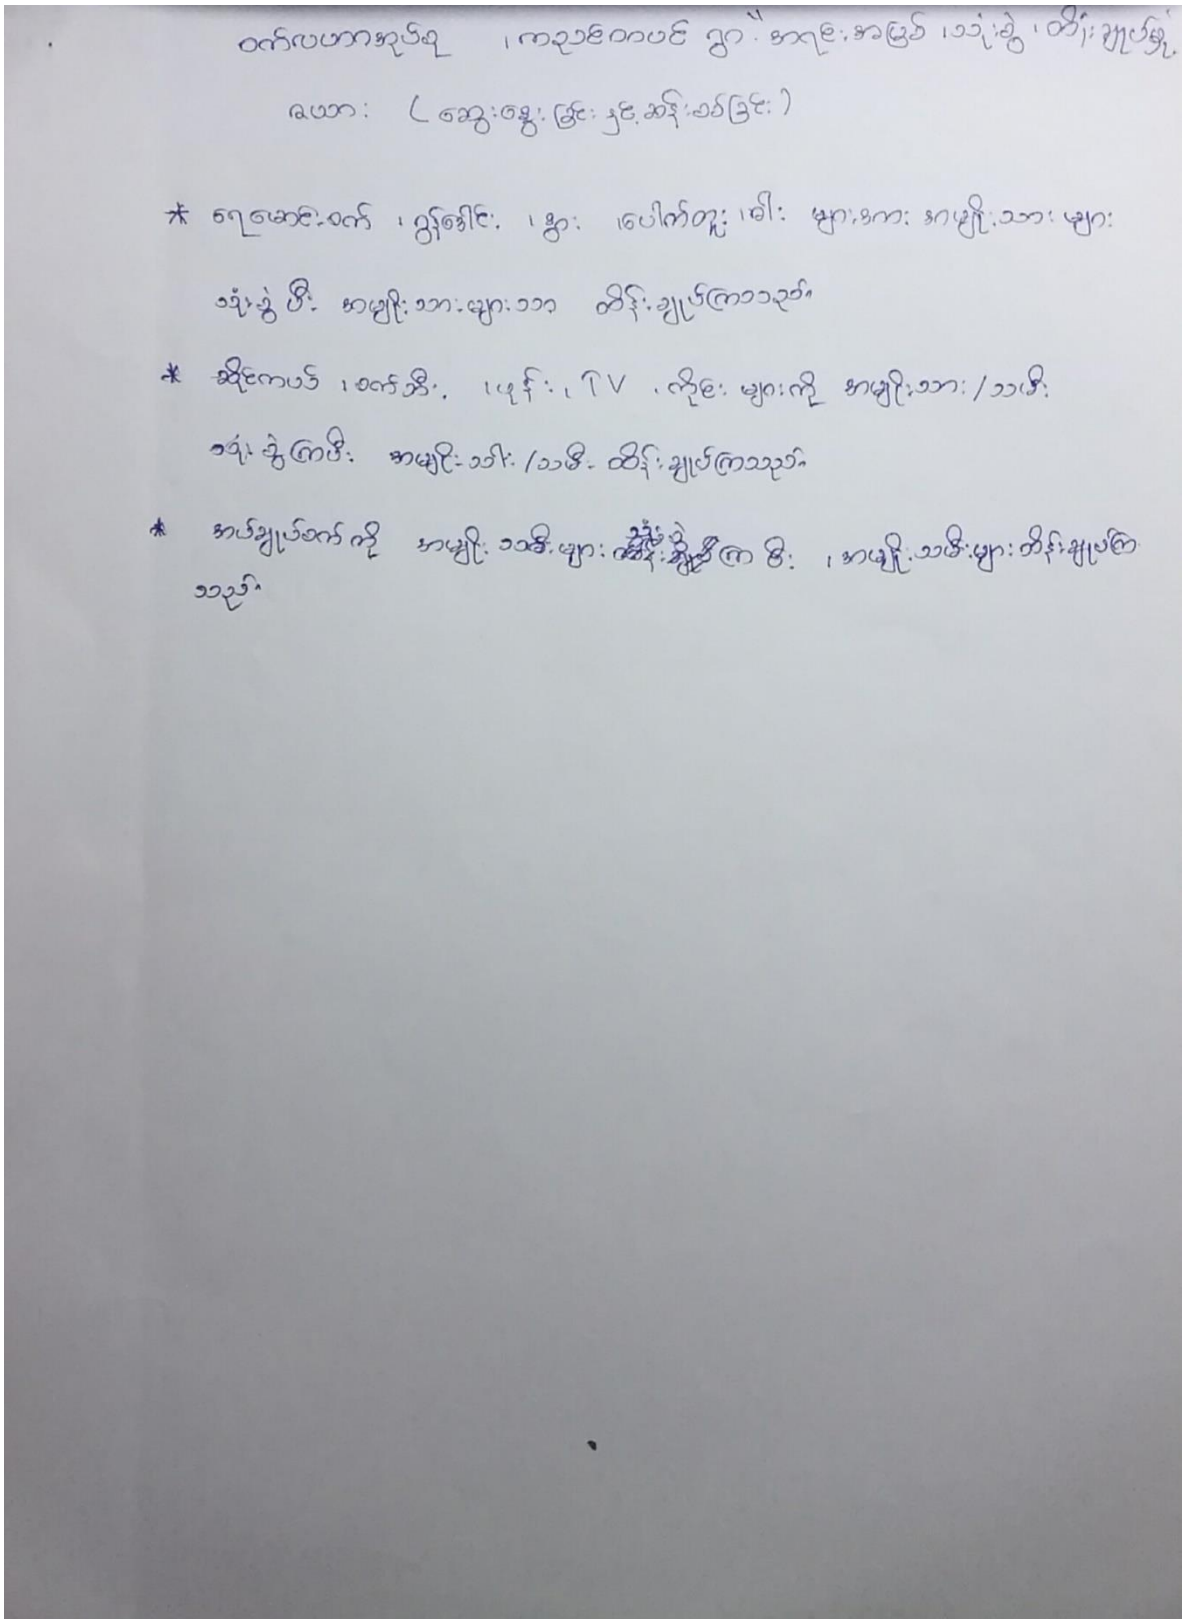 ဝက်လယာအုပ်စု ၊ ကညင်တပင် ရွာ အရင်းအမြစ် ၊ သုံးစွဲ ၊ ထိန်းချုပ်မှု့
ဇယား (ဆွေးနွေးခြင်း နှင့် ဆန်းစစ်ခြင်း)
* ရေမောင်းစက် ၊ ၊ နွား ၊ ပေါက်တူး ၊ ဓါး များအား အမျိုးသားများ
သုံးစွဲပြီး အမျိုးသားများသာ ထိန်းချုပ်ကြသည်။
* ဆိုင်ကယ် ၊ စက်ဘီး ၊ ဖုန်း ၊ TV ၊ ကိုင်း များကို အမျိုးသား/သမီး
သုံးစွဲကြပြီး အမျိုးသား/သမီး ထိန်းချုပ်ကြသည်။
* အပ်ချုပ်စက်ကို အမျိုးသမီးများ သုံးစွဲကြပြီး ၊ အမျိုးသမီးများထိန်းချုပ်ကြ
သည်။